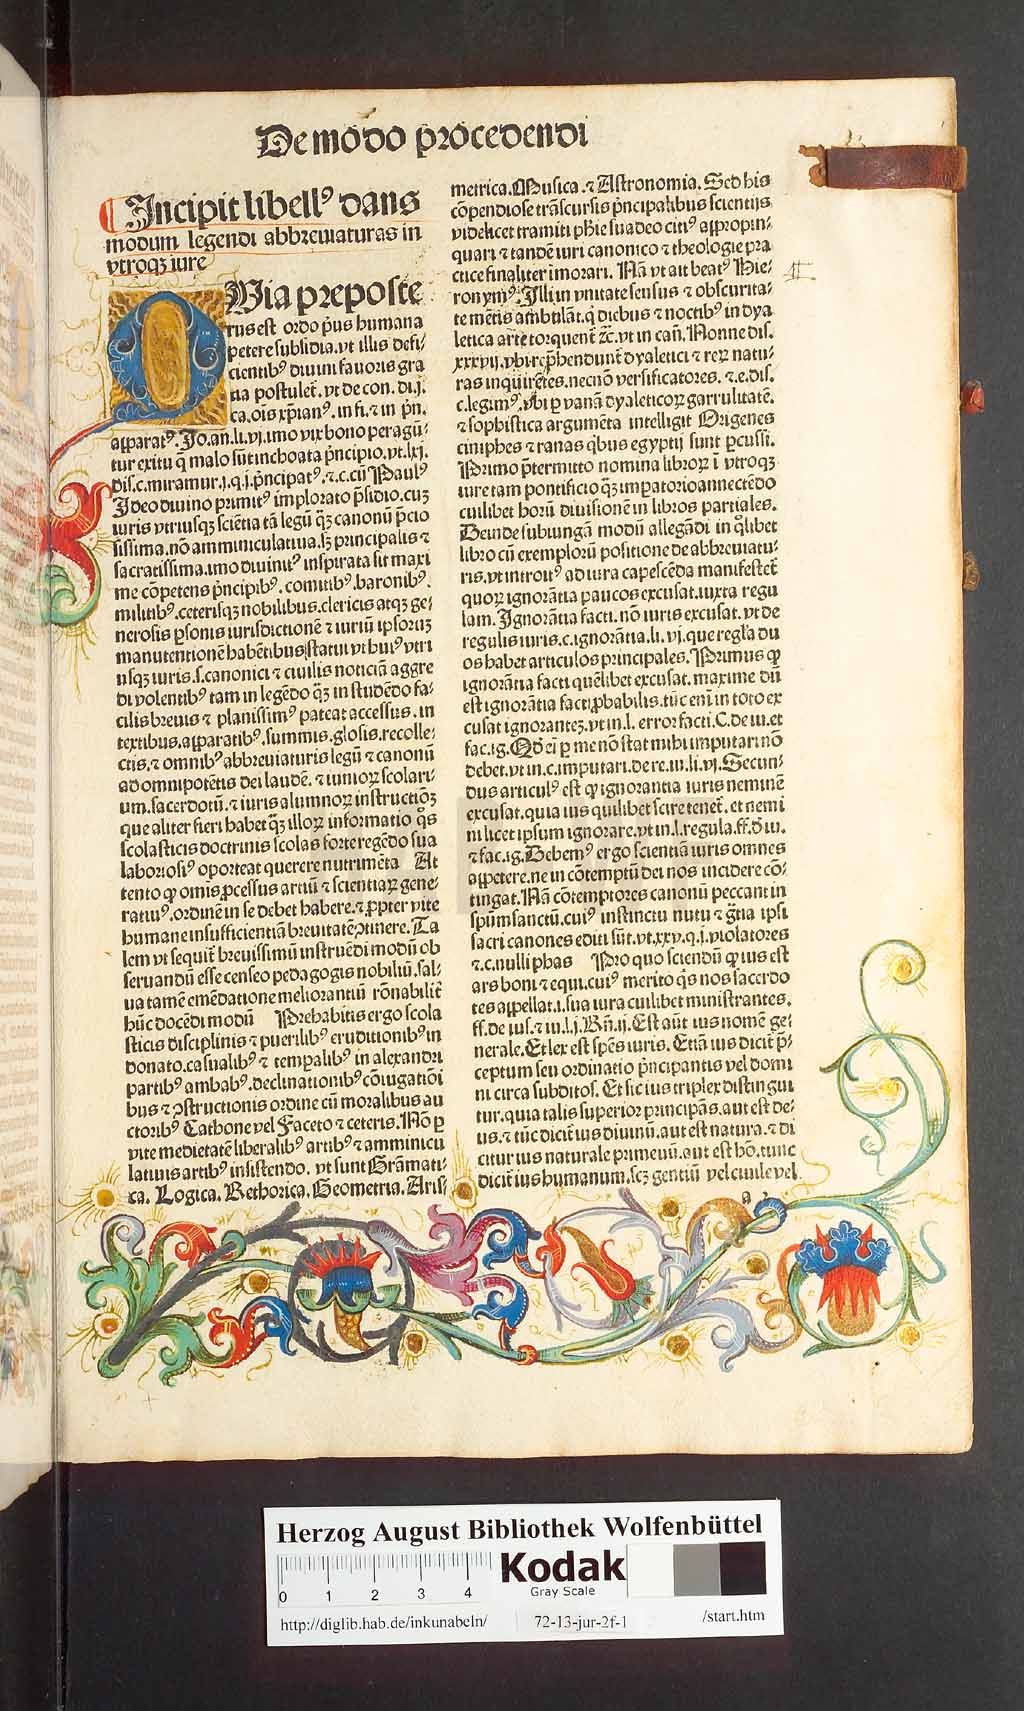 De modo p̄rocedendi
Incipit libellꝰ dans
modum legendi abbreuiaturas in
vtroqꝫ iure
QVia prepoſte
rus eſt ordo p̄us humana
petere ſubſidia. vt illis defi⸗
cientibꝰ diuini fauoris gra
tia poſtulet̄. vt de con. di. j.
ca. ois xp̄ianꝰ. in fi. ⁊ in p̄n.
apparatꝰ. Jo. an. li. vj. imo vix bono peragū⸗
tur exitu q̄ malo ſūt inchoata p̄ncipio. vt. lxj.
diſ. c. miramur. j. q. j. p̄ncipatꝰ. ⁊. c. cū Paulꝰ
Ideo diuino primitꝰ implorato p̄ſidio. cuꝫ
iuris vtriuſqꝫ ſciētia tā legū qꝫ̄ canonū p̄cio
ſiſſima. nō amminiculatiua. ſꝫ principalis ⁊
ſacratiſſima. imo diuinitꝰ inſpirata ſit maxi
me cōpetens p̄ncipibꝰ. comitibꝰ. baronibꝰ.
militibꝰ. ceteriſqꝫ nobilibus. clericis atqꝫ ge⸗
neroſis ꝑſonis iurisdictionē ⁊ iuriū ipſoruꝫ
manutentionē habētibus ſtatui vt huiꝰ vtri
uſqꝫ iuris. ſ. canonici ⁊ ciuilis noticiā aggre
di volentibꝰ tam in legēdo qꝫ̄ in ſtudēdo fa⸗
cilis breuis ⁊ planiſſimꝰ pateat acceſſus. in
textibus. apparatibꝰ. ſummis. gloſis. recolle⸗
ctis. ⁊ omnibꝰ abbreuiaturis legū ⁊ canonū
ad omnipotētis dei laudē. ⁊ iunioꝝ ſcolari⸗
um. ſacerdotū. ⁊ iuris alumnoꝝ inſtructiōꝫ
que aliter fieri habet qꝫ̄ illoꝝ informatio q̄s
ſcolaſticis doctrinis ſcolas forte regēdo ſua
laborioſiꝰ oporteat querere nutrimēta   At
tento ꝙ omīs ꝓceſſus artiū ⁊ ſcientiaꝝ gene⸗
ratiuꝰ. ordinē in ſe debet habere. ⁊ ꝓpter vite
humane inſufficientiā breuitatē ꝯtinere. Ta
lem vt ſequit̄ breuiſſimū inſtruēdi modū ob
ſeruandū eſſe cenſeo pedagogis nobiliū. ſal⸗
ua tamē emēdatione meliorantiū rōnabilit̄
hūc docēdi modū   Prehabitis ergo ſcola
ſticis diſciplinis ⁊ puerilibꝰ eruditionibꝰ in
donato. caſualibꝰ ⁊ temp̄alibꝰ in alexandri
partibꝰ ambabꝰ. declinationibꝰ cōiugatiōi
bus ⁊ ꝯſtructionis ordine cū moralibus au
ctoribꝰ Cathone vel Faceto ⁊ ceteris. Nō ꝑ
vite medietatē liberalibꝰ artibꝰ ⁊ amminicu
latiuis artibꝰ inſiſtendo. vt ſunt Grāmati⸗
ca. Logica. Rethorica. Geometria. Ariſ⸗
metrica. Muſica. ⁊ Aſtronomia. Sed his
cōpendioſe trāſcurſis p̄ncipalibus ſcientijs
videlicet tramiti phīe ſuadeo citiꝰ appropin⸗
quari ⁊ tandē iuri canonico ⁊ theologie pra
ctice finaliter imorari. Nā vt ait beatꝰ Hie⸗
ronymꝰ. Illi in vnitate ſenſus ⁊ obſcurita⸗
te mētis ambulāt. q̄ diebus ⁊ noctibꝰ in dya
letica arte torquent̄ ⁊c̄. vt in cań. Nonne diſ.
xxxvij. vbi rep̄hendunt̄ dyaletici ⁊ reꝝ natu⸗
ras inquirētes. necnō verſificatores. ⁊. e. diſ.
c. legimꝰ. vbi ꝑ vanā dyaleticoꝝ garrulitatē.
⁊ ſophiſtica argumēta intelligit Origenes
ciniphes ⁊ ranas qͥbus egyptij ſunt ꝑcuſſi.
Primo p̄termitto nomina libroꝝ ī vtroqꝫ
iure tam pontificio qꝫ̄ imꝑatorio annectēdo
cuilibet horū diuiſionē in libros partiales.
Deinde ſubiungā modū allegādi in q̄libet
libro cū exemplorū poſitione de abbreuiatu⸗
ris. vt introitꝰ ad iura capeſcēda manifeſtet̄
quoꝝ ignorātia paucos excuſat. iuxta regu
lam. Ignorātia facti. nō iuris excuſat. vt de
regulis iuris. c. ignorātia. li. vj. que regl̄a du
os habet articulos principales. Primus ꝙ
ignorātia facti quēlibet excuſat. maxime dū
eſt ignorātia facti ꝓbabilis. tūc enī in toto ex
cuſat ignoranteꝫ. vt in. l. error facti. C. de iu. et
fac. ig. Qd̄ eī ꝑ me nō ſtat mihi imputari nō
debet. vt in. c. imputari. de re. iu. li. vj. Secun⸗
dus articulꝰ eſt ꝙ ignorantia iuris neminē
excuſat. quia ius quilibet ſcire tenet̄. et nemi
ni licet ipſum ignorare. vt in. l. regula. ff. d̄ iu.
⁊ fac. ig. Debemꝰ ergo ſcientiā iuris omnes
appetere. ne in cōtemptū dei nos incidere cō⸗
tingat. Nā cōtemptores canonū peccant in
ſpūmſanctū. cuiꝰ inſtinctu nutu ⁊ gr̄tia ipſi
ſacri canones editi ſūt. vt. xxv. q. j. violatores
⁊. c. nulli phas   Pro quo ſciendū ꝙ ius eſt
ars boni ⁊ equi. cuiꝰ merito q̄s nos ſacerdo
tes appellat. i. ſua iura cuilibet miniſtrantes.
ff. de iuſ. ⁊ iu. l. j. Rn̄. ij. Eſt aūt ius nomē ge⸗
nerale. Et lex eſt ſpēs iuris. Etiā ius dicit̄ p̄⸗
ceptum ſeu ordinatio p̄ncipantis vel domi
ni circa ſubditos. Et ſic ius triplex diſtingui
tur. quia talis ſuperior principās. aut eſt de⸗
us. ⁊ tūc dicit̄ ius diuinū. aut eſt natura. ⁊ di
citur ius naturale primeuū. aut eſt hō. tunc
dicit̄ ius humanum. ſcꝫ gentiū vel ciuile vel
a 2
Herzog August Bibliothek Wolfenbüttel
0 1 2 3 4
Kodak
Gray Scale
http://diglib.hab.de/inkunabeln/ 72-13-jur-2f-1 /start.htm